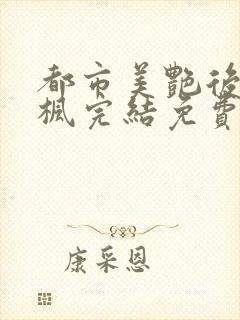 都市美艷後
楓完結免費
康采恩